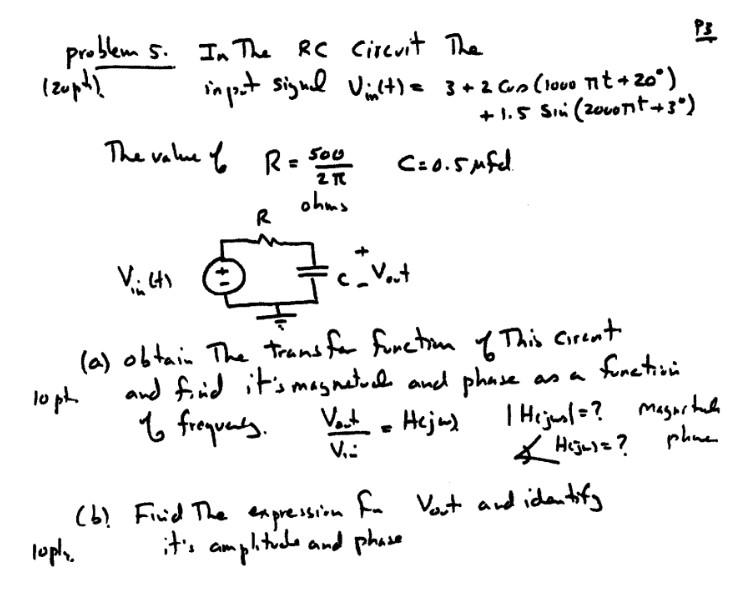 P3
problem 5. In The RC Circuit The
(20pt). input signal Vin(t) = 3 + 2 Cos (1000 πt + 20°)
+ 1.5 Sin (2000πt + 3°)
The value of R = 500/2π ohms C = 0.5 μfd
R
Vin(t) + - C + - Vout
(a) obtain The transfer function of This Circuit
10 pt. and find it's magnetude and phase as a function
of frequency. Vout/Vin = H(jω) |H(jω)| = ? Magnetude
∠ H(jω) = ? phase
(b) Find The expression for Vout and identify
10pt. it's amplitude and phase